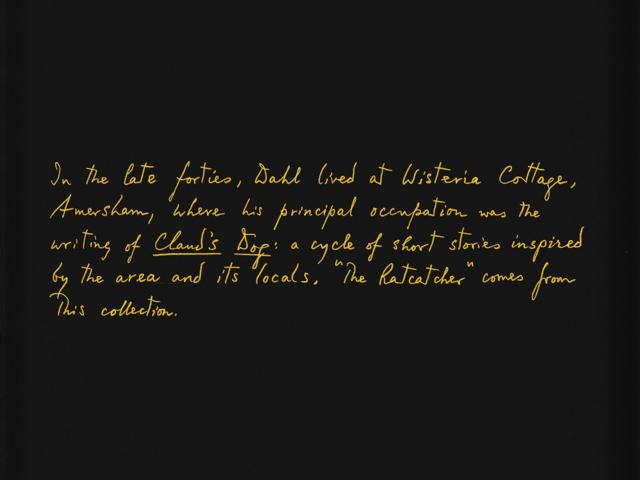 In the late forties, Dahl lived at Wisteria Cottage,
Amersham, where his principal occupation was the
writing of Claud's Dog: a cycle of short stories inspired
by the area and its locals. "The Ratcatcher" comes from
this collection.